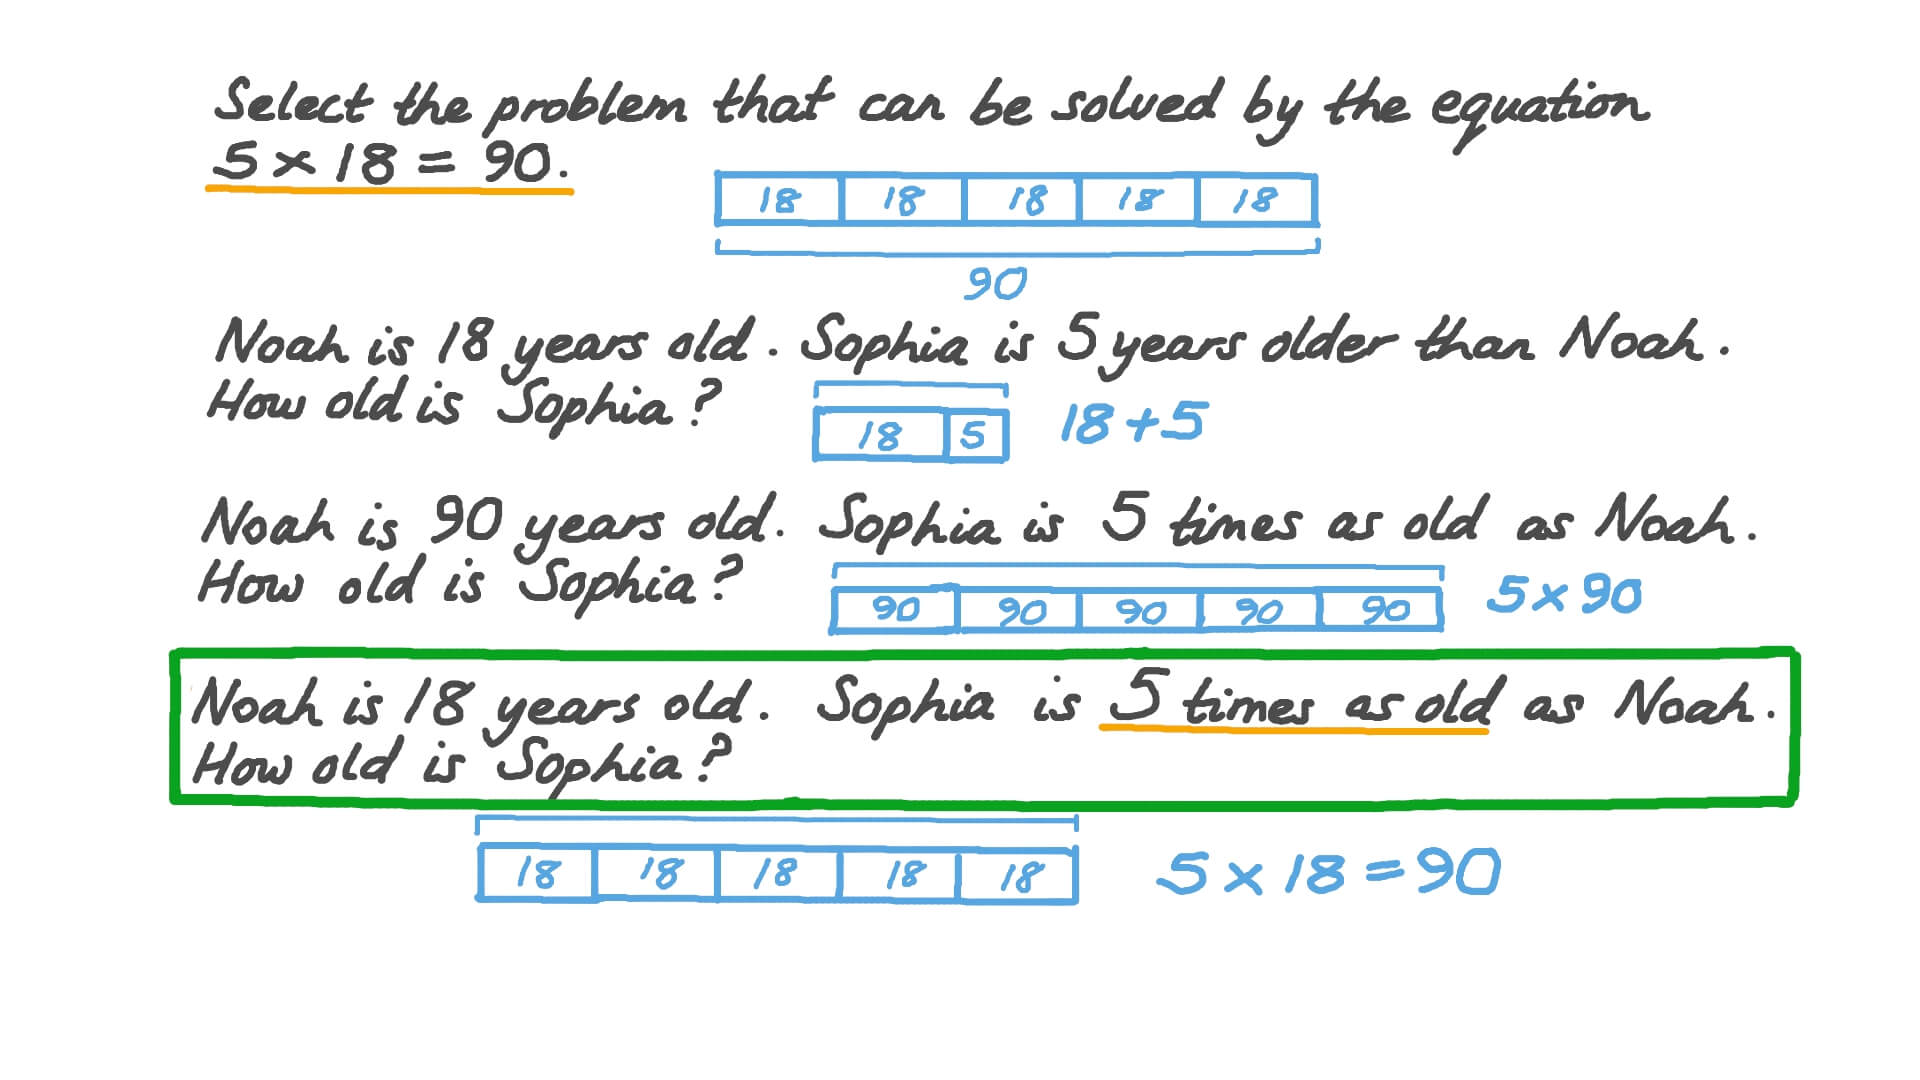 Select the problem that can be solved by the equation
5 × 18 = 90.
18 18 18 18 18
90
Noah is 18 years old. Sophia is 5 years older than Noah.
How old is Sophia?
18 5 18 + 5
Noah is 90 years old. Sophia is 5 times as old as Noah.
How old is Sophia?
90 90 90 90 90 5 × 90
Noah is 18 years old. Sophia is 5 times as old as Noah.
How old is Sophia?
18 18 18 18 18 5 × 18 = 90